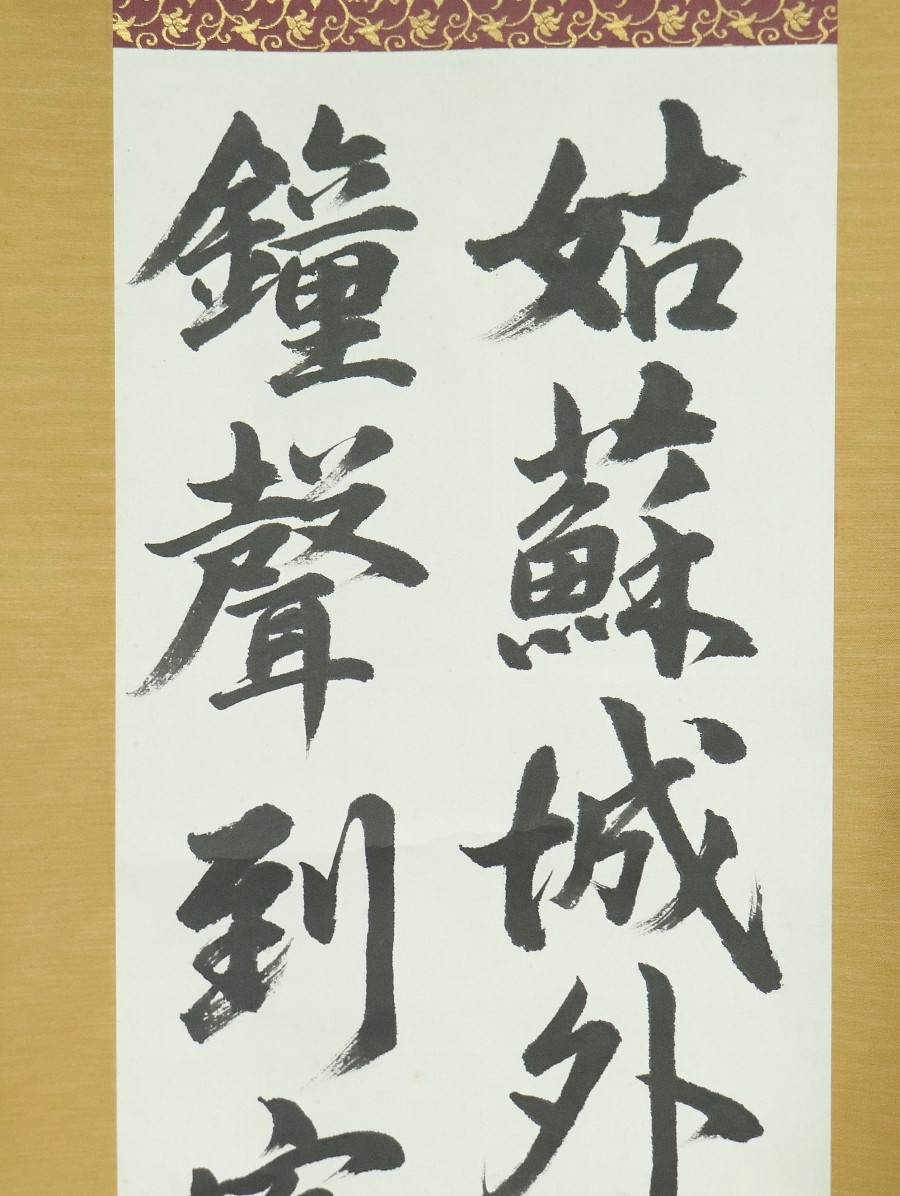 姑蘇城外
鐘聲到客